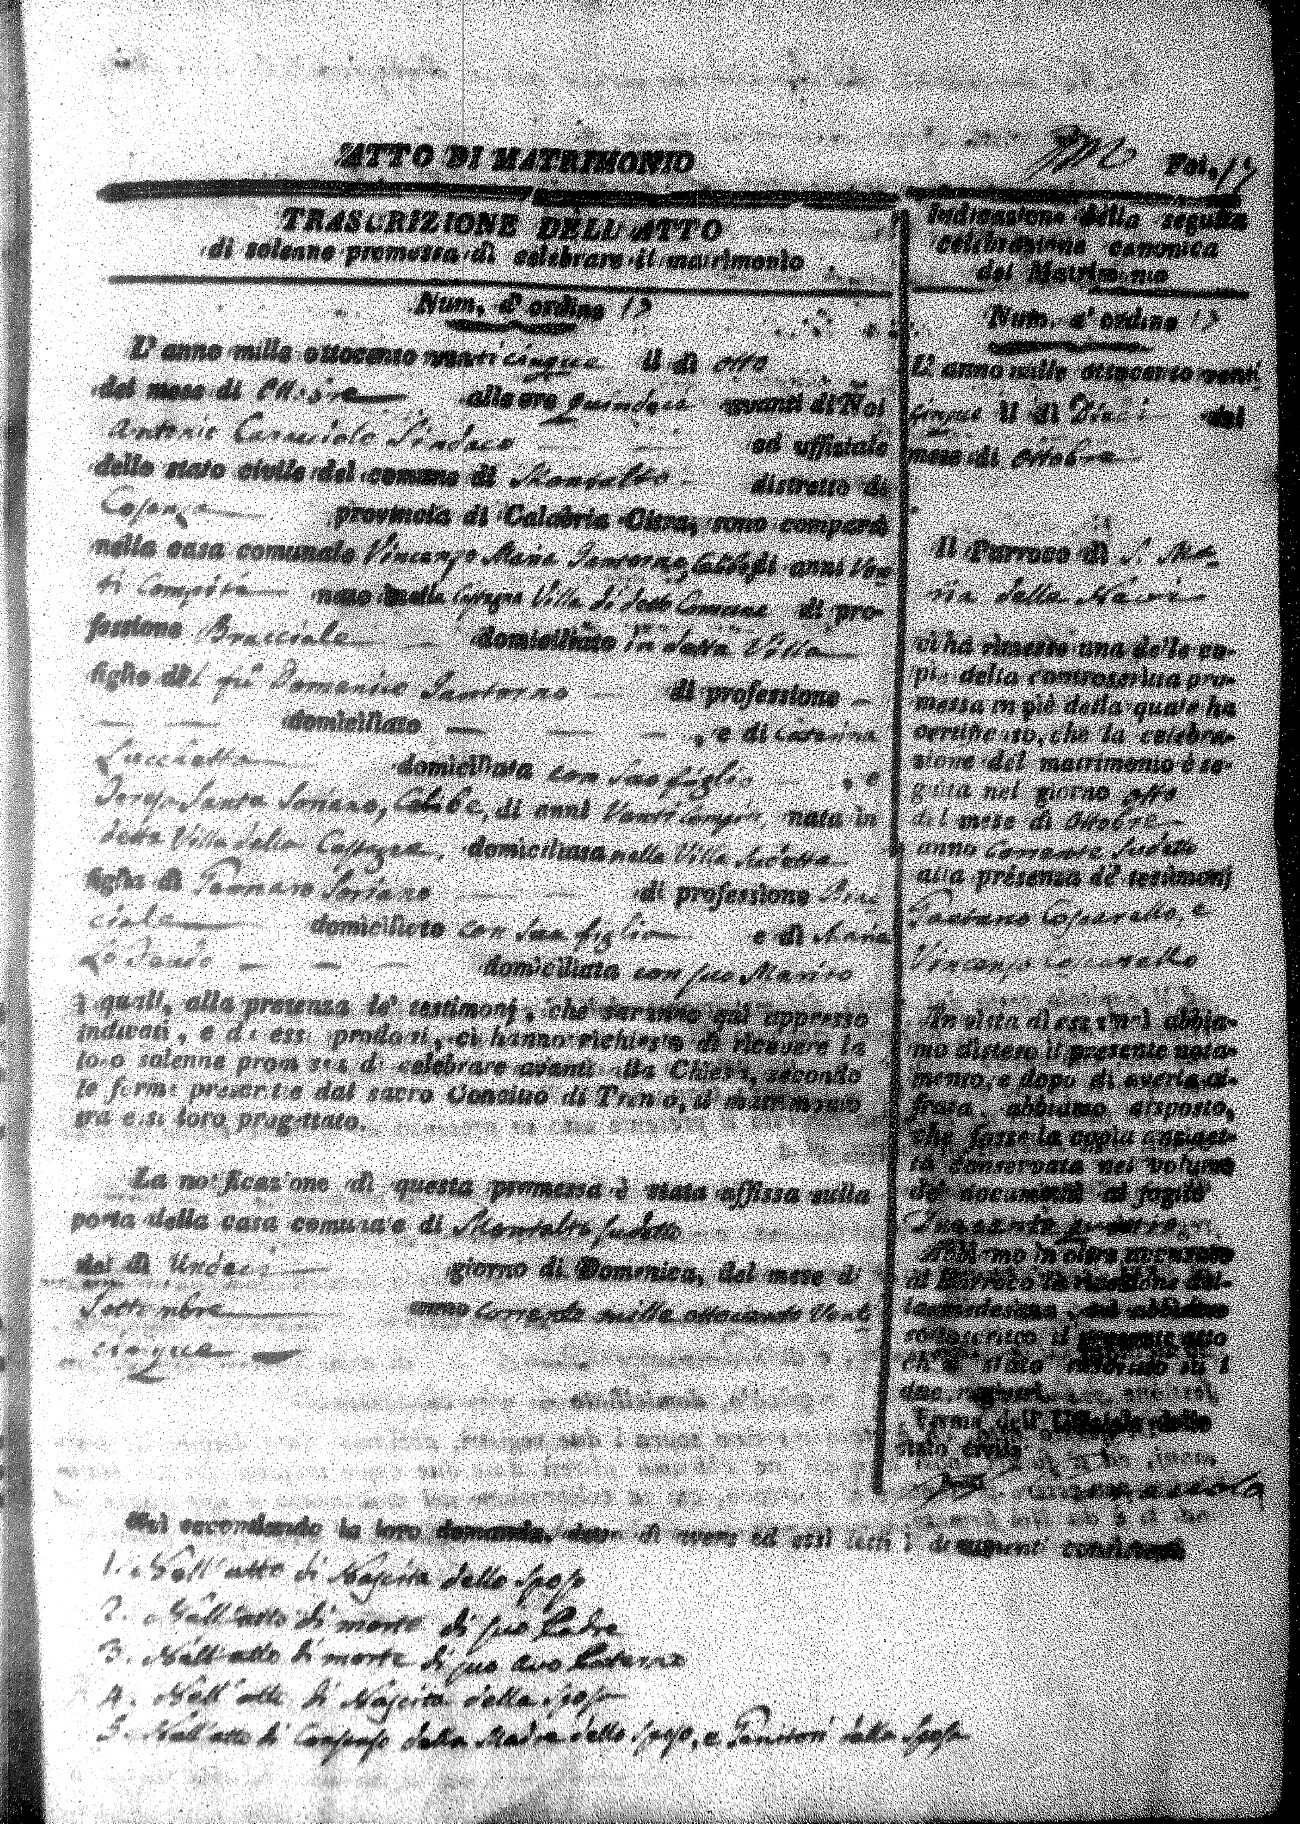 ATTO DI MATRIMONIO
Fol. 17
TRASCRIZIONE DELL'ATTO
di solenne promessa di celebrare il matrimonio
Num. d'ordine 17
L'anno mille ottocento venticinque il dì otto
del mese di Ottobre alle ore quindeci avanti di Noi
Antonio Caracciolo Sindaco ed uffiziale
dello stato civile del comune di Montalto distretto di
Cosenza provincia di Calabria Citra, sono comparsi
nella casa comunale Vincenzo Maria di anni Ven
ti Compiti nato nella Villa di detto Comune di pro-
fessione Bracciale domiciliato in detta Villa
figlio del fu Domenico di professione
domiciliato e di Caterina
domiciliata con suo figlio , e
Teresa Santa Soriano, Celibe, di anni Venti Compiti, nata in
detta Villa della domiciliata nella Villa sudetta
figlia di Gennaro Soriano di professione Brac
ciale domiciliato con sua figlia e di Maria
domiciliata con suo Marito
i quali, alla presenza de' testimonj, che saranno quì appresso
indicati, e da essi prodotti, ci hanno richiesto di ricevere la
loro solenne promessa di celebrare avanti alla Chiesa, secondo
le forme prescritte dal sacro Concilio di Trento, il matrimonio
tra essi loro progettato.
La notificazione di questa promessa è stata affissa sulla
porta della casa comunale di Montalto sudetto
del dì Undeci giorno di Domenica, del mese di
Settembre anno corrente mille ottocento Venti
cinque
Indicazione della seguita
celebrazione canonica
del Matrimonio
Num. d'ordine 17
L'anno mille ottocento venti
cinque il dì Dieci del
mese di Ottobre
Il Parroco di S. Ma-
ria della
ci ha rimesso una delle co-
pie della controscritta pro-
messa in piè della quale ha
certificato, che la celebra-
zione del matrimonio è se-
guita nel giorno otto
del mese di Ottobre
anno Corrente sudetto
alla presenza de' testimonj
Gaetano e
Vincenzo
In vista di essa noi abbia-
mo disteso il presente nota-
mento, e dopo di averlo ci-
frato, abbiamo disposto,
che fosse la copia anzidet-
ta conservata nel volume
de' documenti al foglio
Abbiamo in oltre accusato
al Parroco la ricezione del-
la medesima, ed abbiamo
sottoscritto il presente atto
ch' è stato inscritto su i
due registri.
Firma dell' Uffiziale dello
stato civile
Quì secondando la loro domanda, dopo di avere ad essi letti i documenti consistenti
1. Nell'atto di Nascita dello Sposo
2. Nell'atto di morte di suo Padre
3. Nell'atto di morte di suo avo Paterno
4. Nell'atto di Nascita della Sposa
5. Nell'atto di Consenso della Madre dello sposo, e Genitori della Sposa